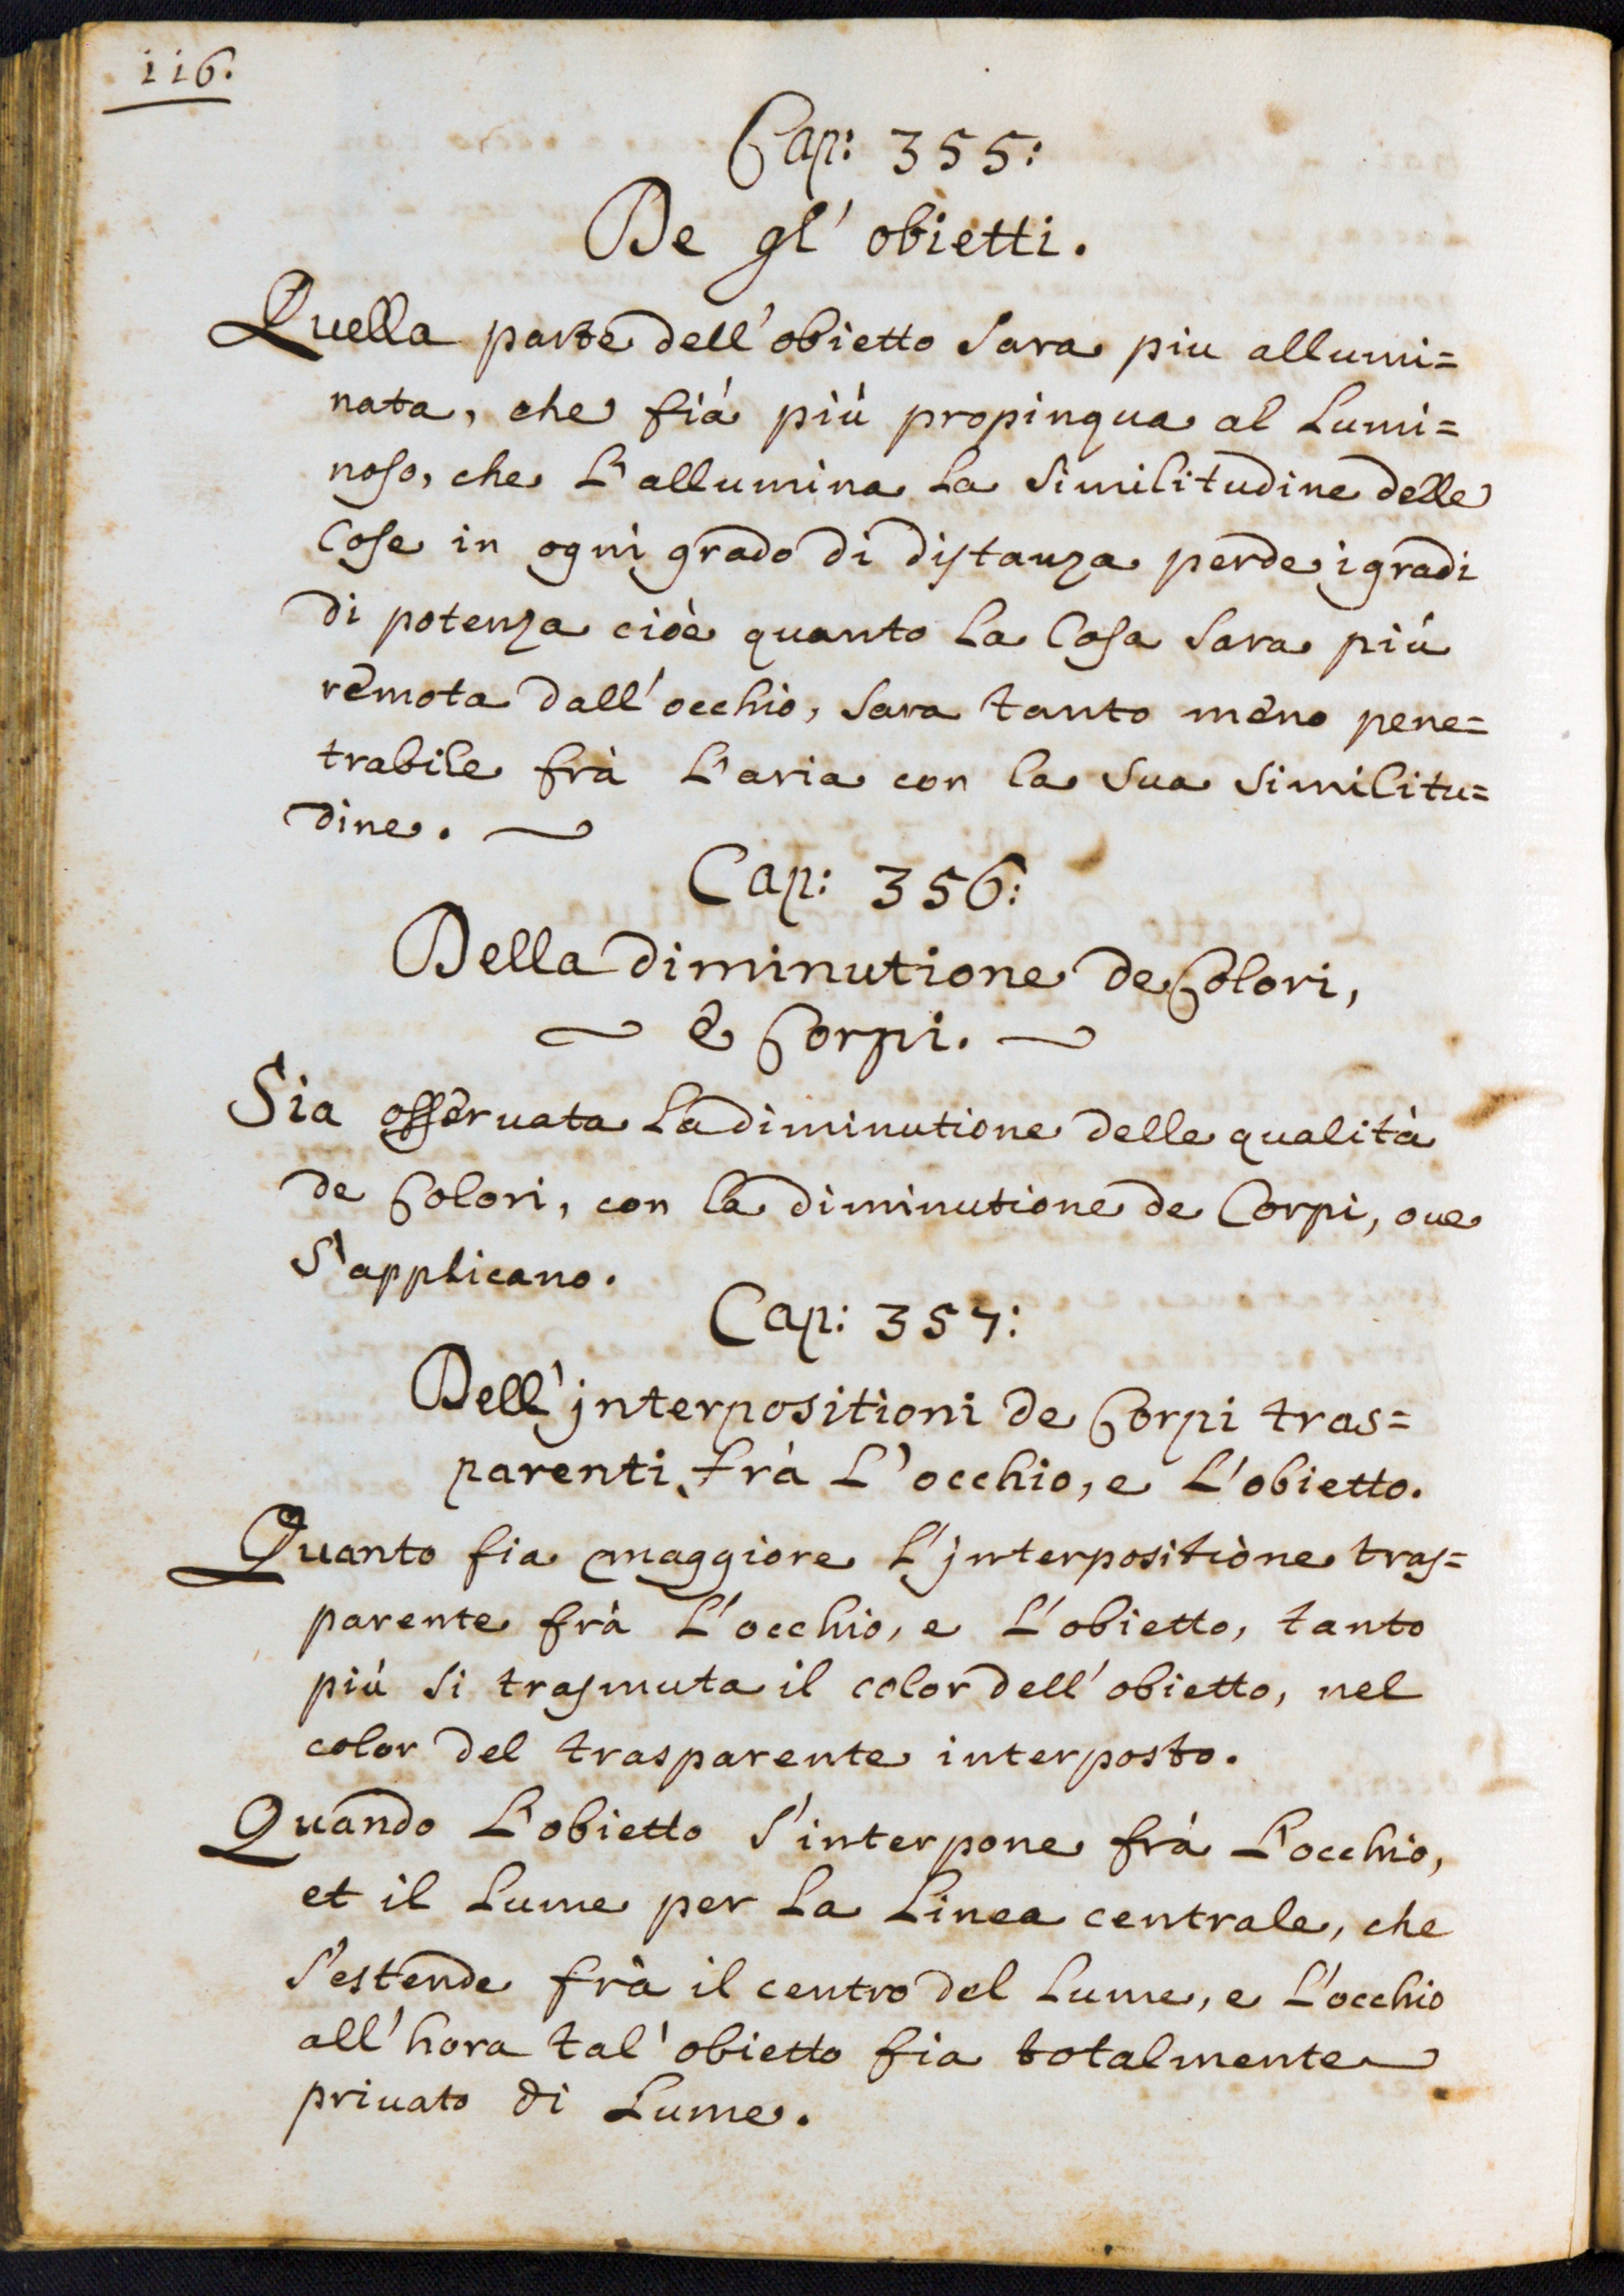 116.
Cap: 355:
De gl' obietti.
Quella parte dell'obietto sara piu allumi=
nata, che fià più propinqua al Lumi=
noso, che L'allumina La similitudine delle
Cose in ogni grado di distanza perde i gradi
di potenza cioè quanto La Cosa sara più
remota dall'occhio, sara tanto meno pene=
trabile frà L'aria con la sua similitu=
dine.
Cap: 356:
Della diminutione de Colori,
e Corpi.
Sia osseruata La diminutione delle qualità
de Colori, con la diminutione de Corpi, oue
s'applicano.
Cap: 357:
Dell'jnterpositioni de Corpi tras=
parenti, frà L'occhio, e L'obietto.
Quanto fia maggiore L'jnterpositione tras=
parente frà L'occhio, e L'obietto, tanto
più si trasmuta il color dell'obietto, nel
color del trasparente interposto.
Quando L'obietto s'interpone frà L'occhio,
et il Lume per La Linea centrale, che
s'estende frà il centro del Lume, e L'occhio
all'hora tal'obietto fia totalmente
priuato di Lume.